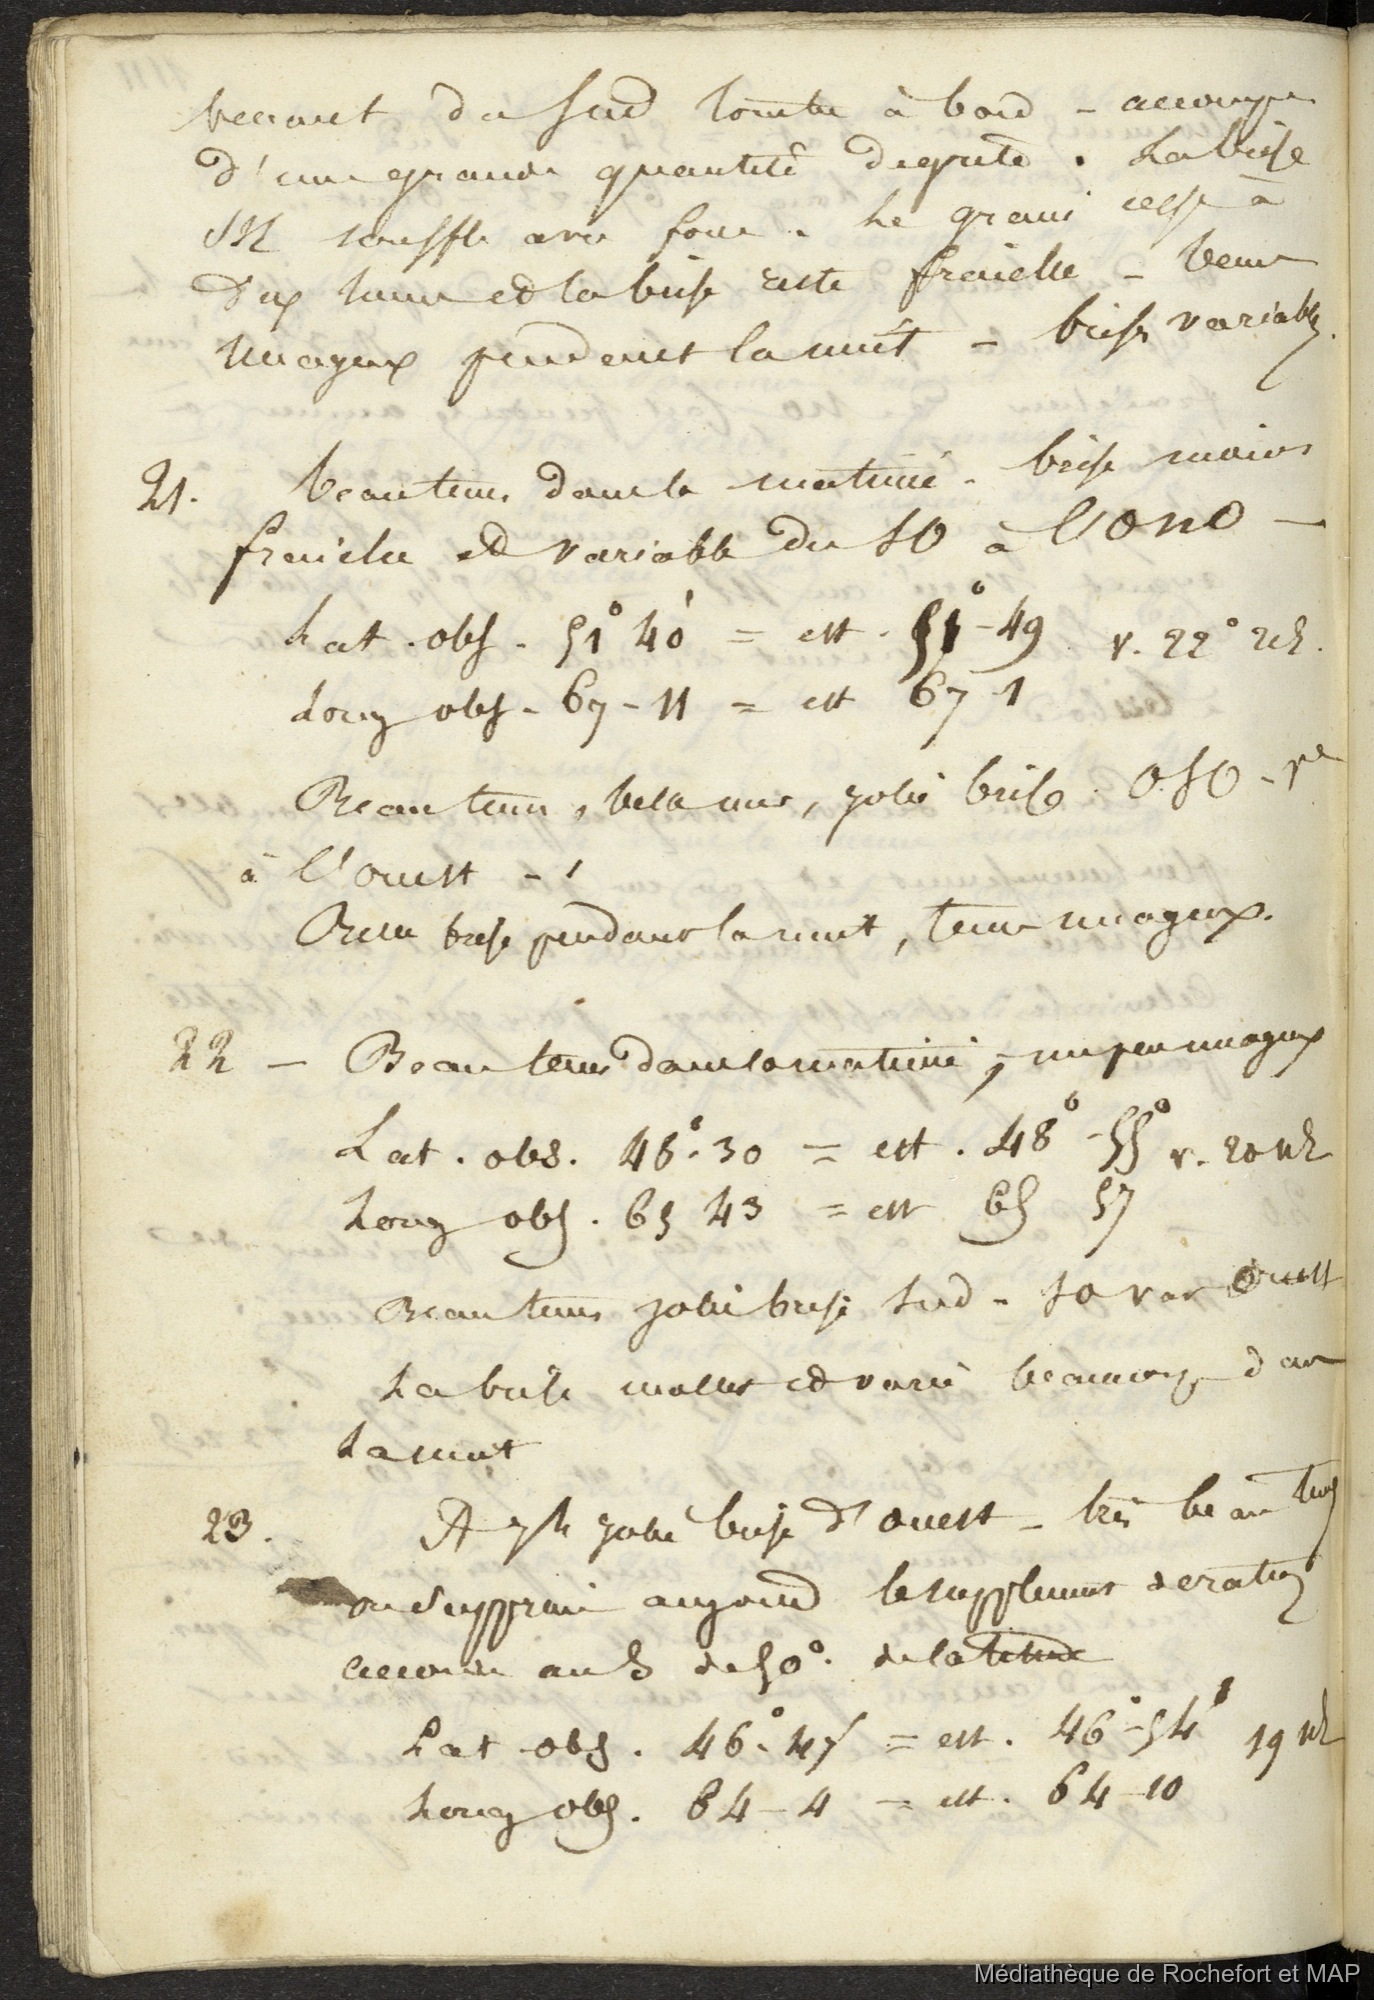 venant du Sud tombe à bord - accomp
d'une grande quantité de grele . La brise
souffle avec force . Le grain cesse à
dix heures et la brise reste fraiche - tems
nuageux pendant la nuit - brise variable.
21. beau tems dans la matinée - brise moins
fraiche et variable du SO à l'ONO -
Lat . obs . 51° 40' = est . 51° - 49 v. 22° NE.
Long obs - 67 - 11 = est 67 - 1
Beau tems, belle mer, jolie brise OSO - Vle
à l'ouest -
Belle brise pendant la nuit, tems nuageux.
22 - Beau tems dans la matinée, - un peu nuageux
Lat . obs . 48° . 30 = est . 48° - 55° v. 20 NE
Long obs . 65 43 = est 65 57
Beau tems jolie brise Sud - SO var Ouest
La brise mollit et varie beaucoup dans
La nuit
23. A 7h jolie brise d'ouest - très beau tems
on supprime aujourd le supplement de ration
accordé au S de 50° . de latitude
Lat obs . 46° . 47 = est . 46° - 54' 19 NE
Long obs . 64 - 4 = est . 64 - 10
Médiathèque de Rochefort et MAP